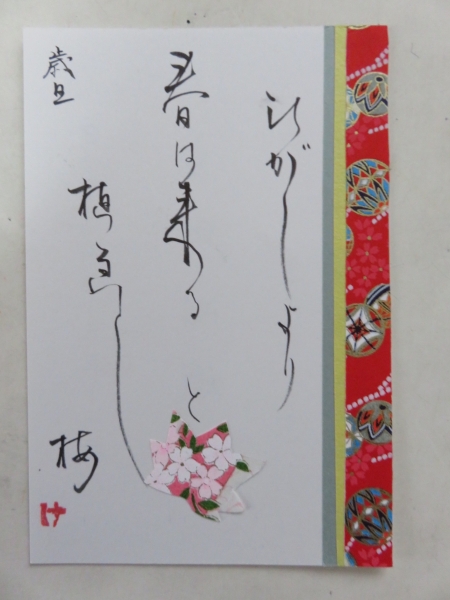 ひがしより
春は来ると
植ゑし
梅
歳旦
け